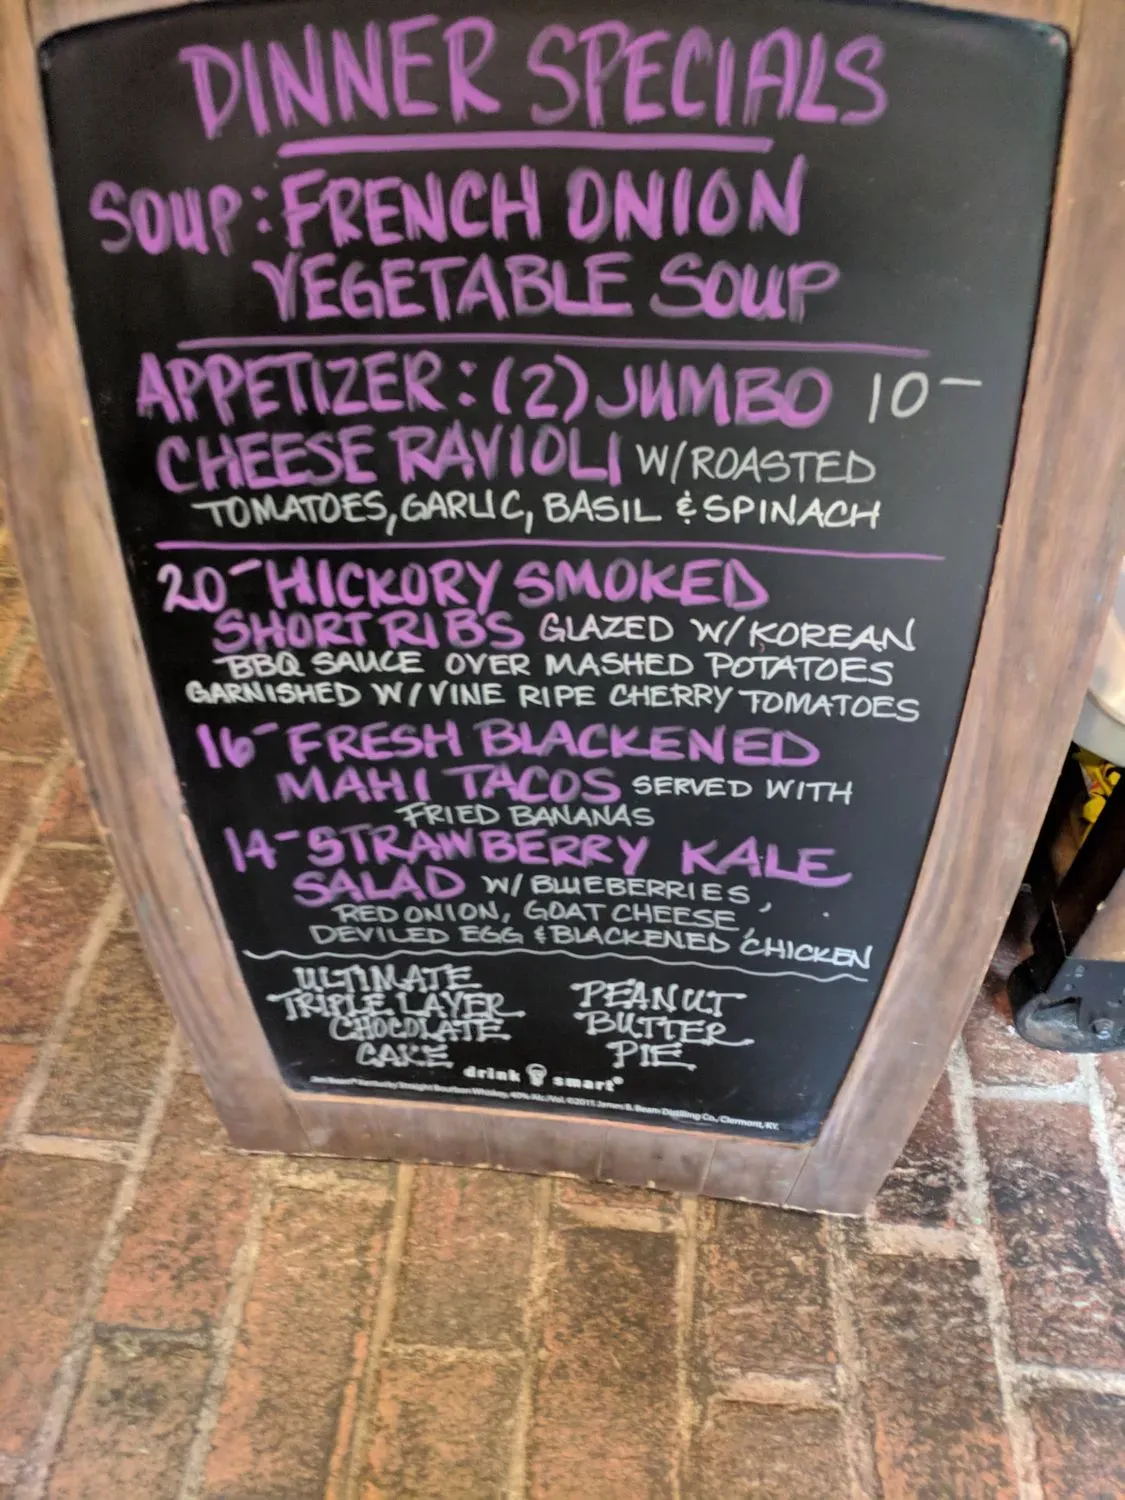 DINNER SPECIALS
SOUP: FRENCH ONION
VEGETABLE SOUP
APPETIZER: (2) JUMBO 10-
CHEESE RAVIOLI W/ROASTED
TOMATOES, GARLIC, BASIL & SPINACH
20- HICKORY SMOKED
SHORT RIBS GLAZED W/KOREAN
BBQ SAUCE OVER MASHED POTATOES
GARNISHED W/VINE RIPE CHERRY TOMATOES
16- FRESH BLACKENED
MAHI TACOS SERVED WITH
FRIED BANANAS
14- STRAWBERRY KALE
SALAD W/ BLUEBERRIES,
RED ONION, GOAT CHEESE,
DEVILED EGG & BLACKENED CHICKEN
ULTIMATE
TRIPLE LAYER
CHOCOLATE
CAKE
PEANUT
BUTTER
PIE
drink smart®
Jim Beam® Kentucky Straight Bourbon Whiskey, 40% Alc./Vol. ©2015 James B. Beam Distilling Co., Clermont, KY.